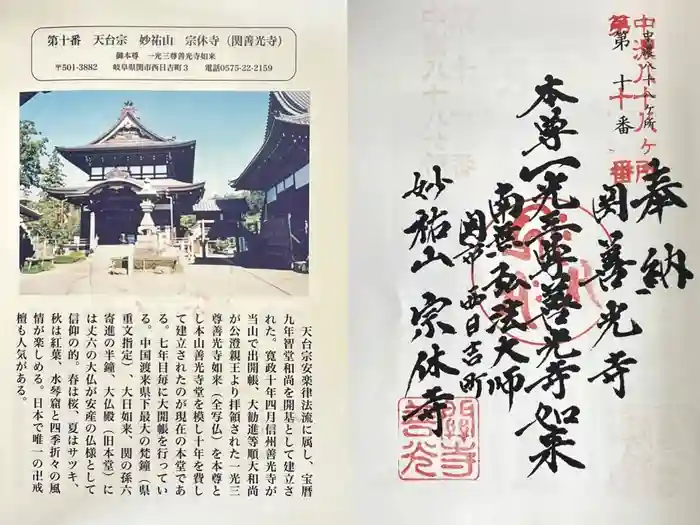 第十番　天台宗　妙祐山　宗休寺（関善光寺）
御本尊　一光三尊善光寺如来
〒501-3882　岐阜県関市西日吉町３　電話0575-22-2159
天台宗安楽律法流に属し、宝暦
九年智堂和尚を開基として建立さ
れた。寛政十年四月信州善光寺が
当山で出開帳、大勧進等順大和尚
が公澄親王より拝領された一光三
尊善光寺如来（全写仏）を本尊と
し本山善光寺堂を模し十年を費し
て建立されたのが現在の本堂であ
る。七年目毎に大開帳を行ってい
る。中国渡来県下最大の梵鐘（県
重文指定）、大日如来、関の孫六
寄進の半鐘、大仏殿（旧本堂）に
は丈六の大仏が安産の仏様として
信仰の的。春は桜、夏はサツキ、
秋は紅葉、水琴窟と四季折々の風
情が楽しめる。日本で唯一の卍戒
壇も人気がある。
中濃八十八ヶ所
第十番
第十番
奉納
関善光寺
本尊一光三尊善光寺如来
南無弘法大師
関市西日吉町
妙祐山宗休寺
関善光寺